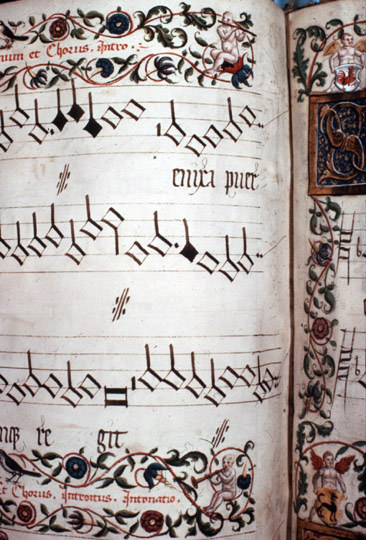 num et Chorus. Intro.
enixa puer
re git
et Chorus. Introitus. Intonatio.